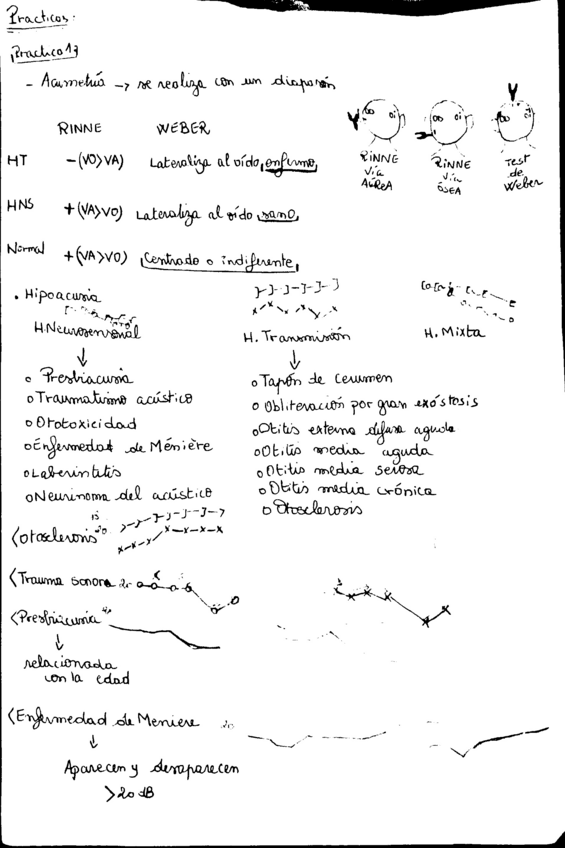 Practicos:
Practico 1
- Acumetría → se realiza con un diapasón
RINNE WEBER
HT - (VO>VA) Lateraliza al oído enfermo
HNS + (VA>VO) Lateraliza al oído sano
Normal + (VA>VO) Centrado o indiferente
RINNE Vía AÉREA
RINNE Vía ÓSEA
Test de Weber
• Hipoacusia
H.Neurosensorial
H. Transmisión
H. Mixta
o Presbiacusia
o Traumatismo acústico
o Ototoxicidad
o Enfermedad de Ménière
o Laberintitis
o Neurinoma del acústico
o Tapón de cerumen
o Obliteración por gran exóstosis
o Otitis externa difusa aguda
o Otitis media aguda
o Otitis media serosa
o Otitis media crónica
o Otosclerosis
<Otosclerosis
<Trauma sonoro 20
<Presbiacusia
relacionada
con la edad
<Enfermedad de Meniere 20
Aparecen y desaparecen
>20 dB